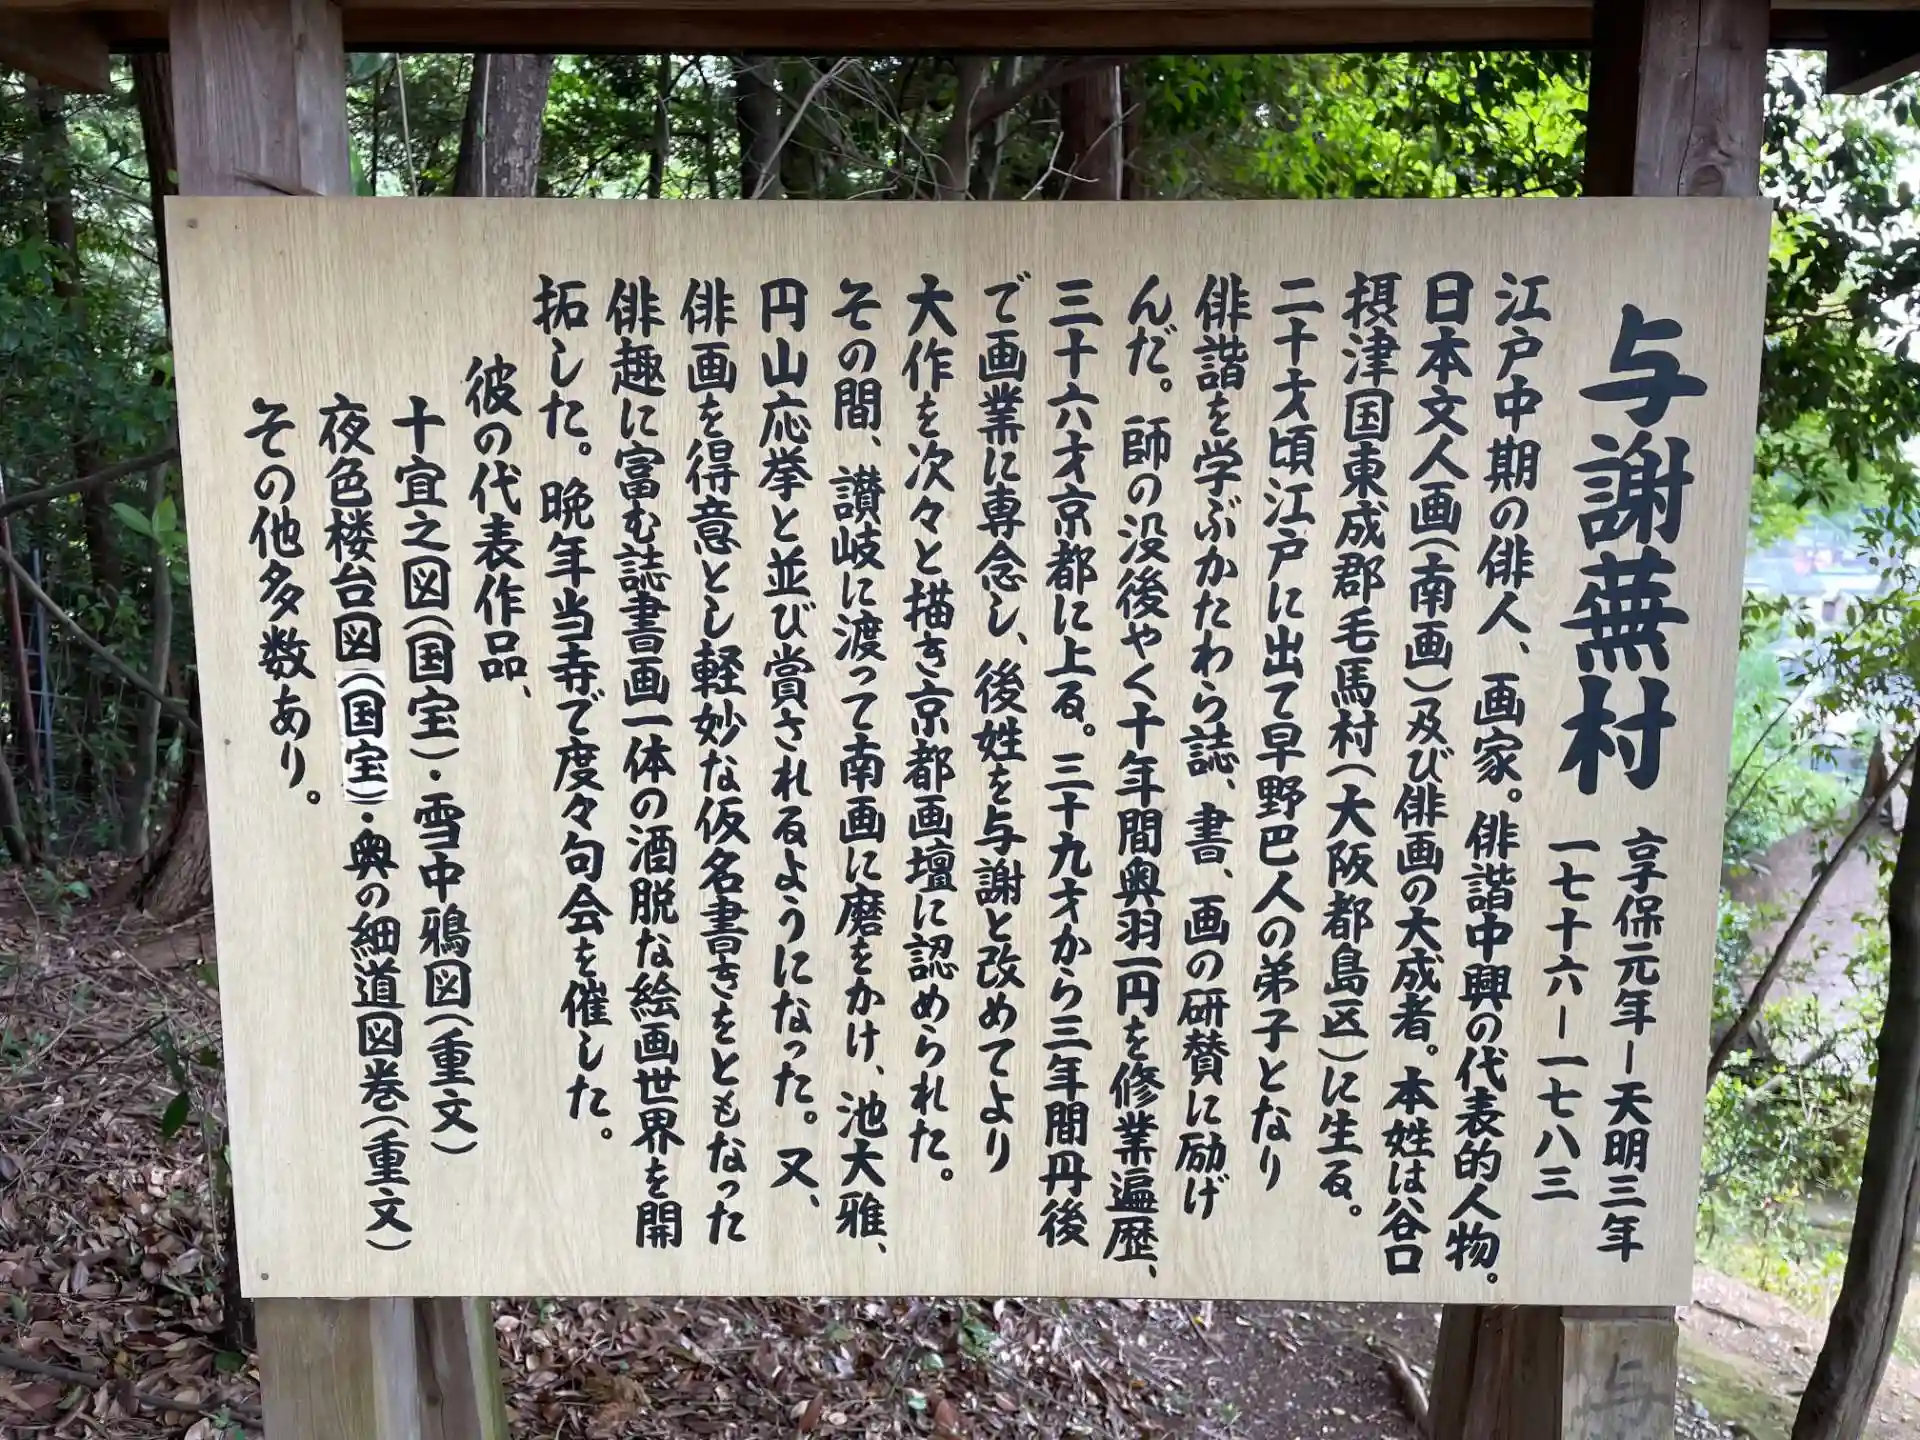 与謝蕪村
享保元年ー天明三年
一七十六ー一七八三
江戸中期の俳人、画家。俳諧中興の代表的人物。
日本文人画(南画)及び俳画の大成者。本姓は谷口
摂津国東成郡毛馬村(大阪都島区)に生る。
二十才頃江戸に出て早野巴人の弟子となり
俳諧を学ぶかたわら誌、書、画の研賛に励げ
んだ。師の没後やく十年間奥羽一円を修業遍歴、
三十六才京都に上る。三十九才から三年間丹後
で画業に専念し、後姓を与謝と改めてより
大作を次々と描き京都画壇に認められた。
その間、讃岐に渡って南画に磨をかけ、池大雅、
円山応挙と並び賞されるようになった。又、
俳画を得意とし軽妙な仮名書きをともなった
俳趣に富む誌書画一体の洒脱な絵画世界を開
拓した。晩年当寺で度々句会を催した。
彼の代表作品、
十宜之図(国宝)・雪中鴉図(重文)
夜色楼台図(国宝)・奥の細道図巻(重文)
その他多数あり。
与